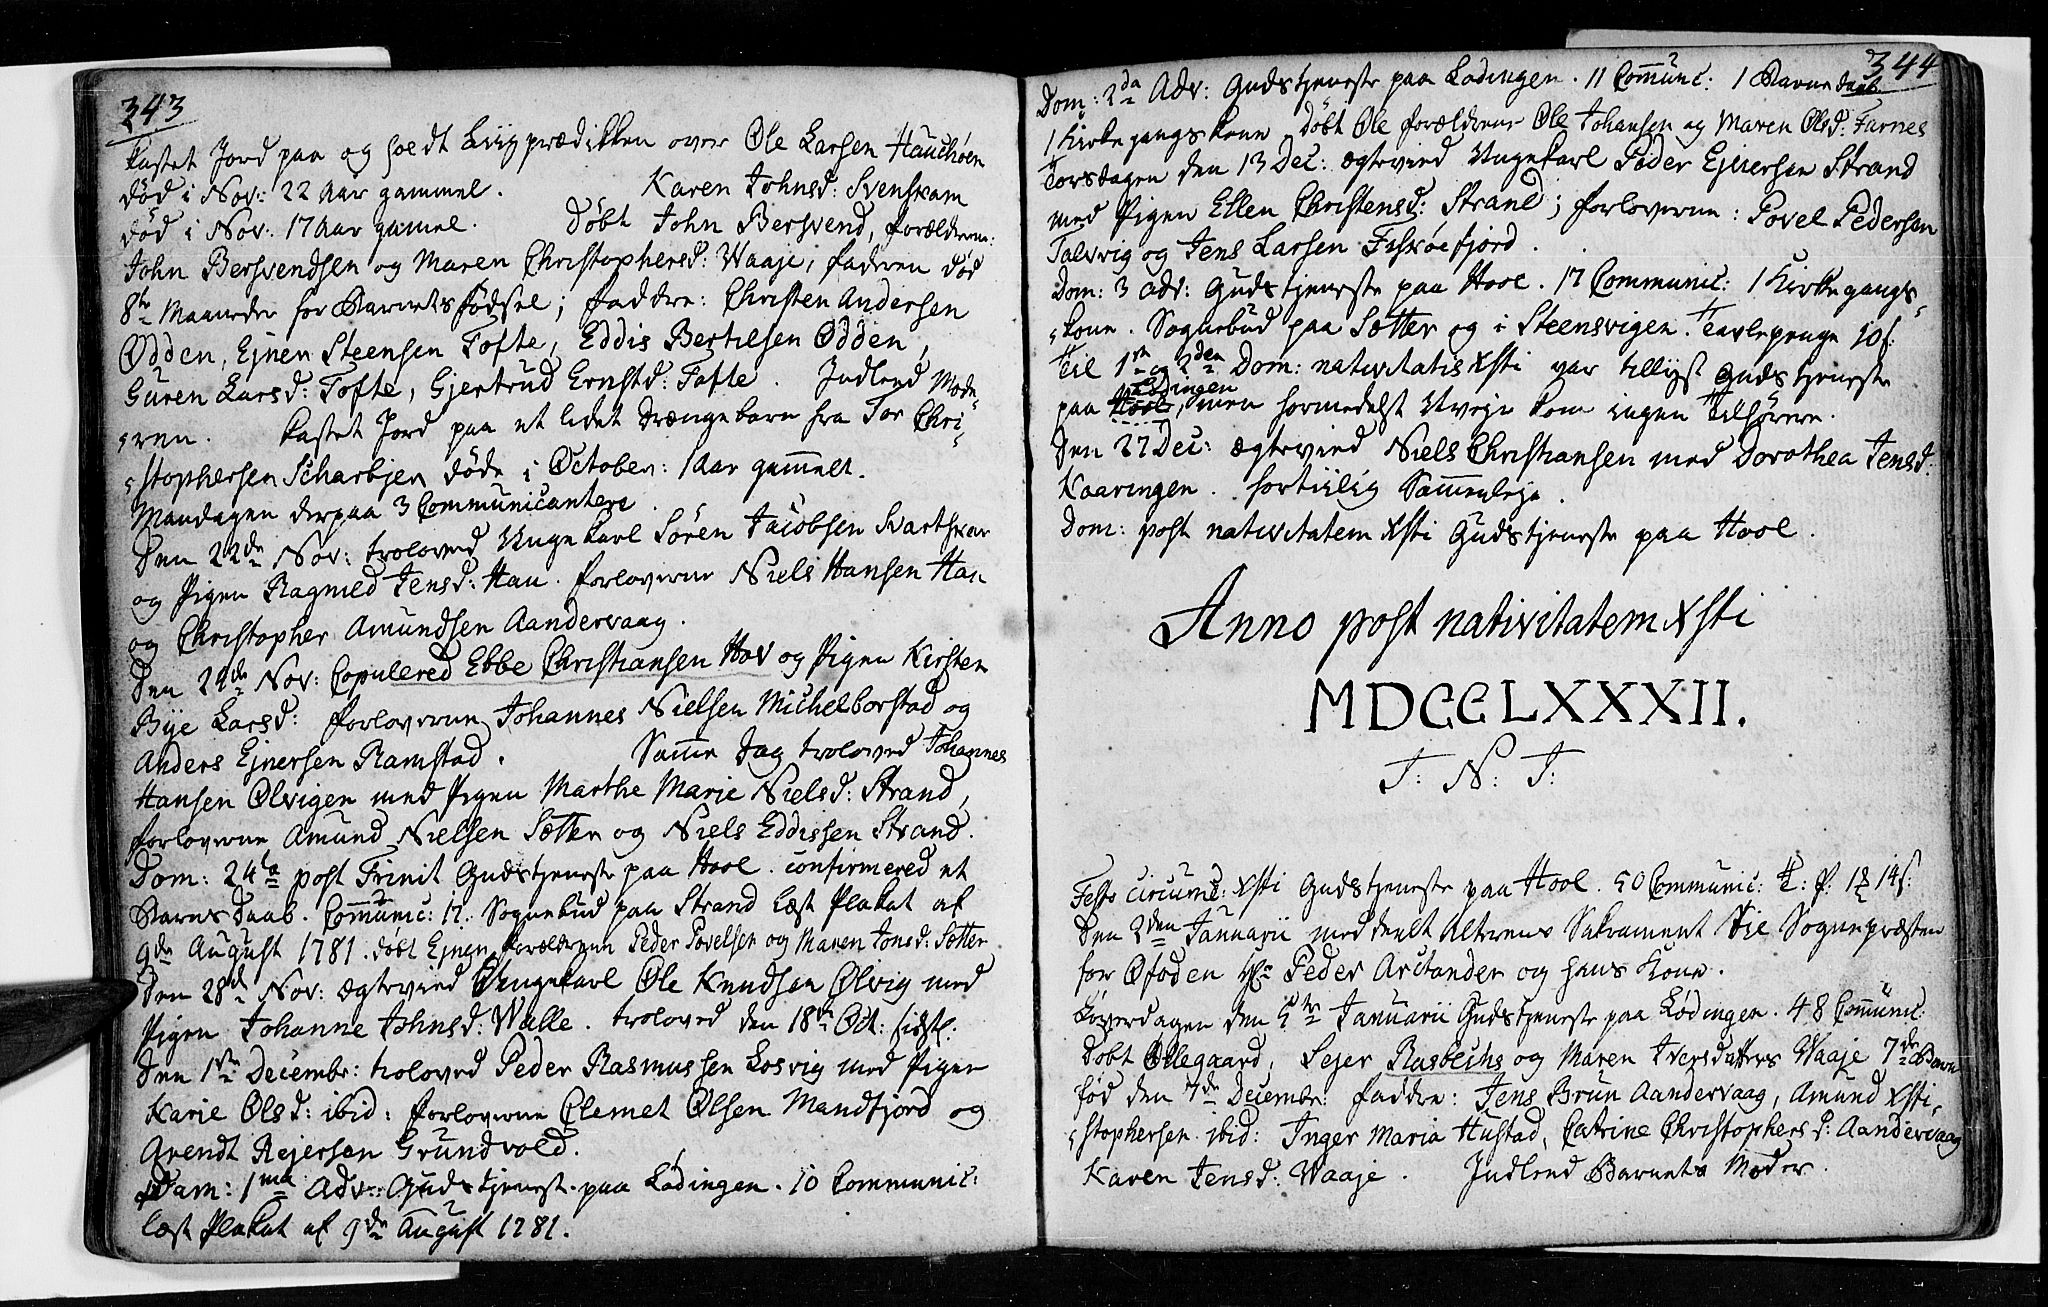 343
kastet Jord paa og holdt Liigprædikken over Ole Larsen Hauchøen
død i Nov: 22 Aar gammel. Karen Johnsd: Svenskam
død i Nov: 17 Aar gam̅el. Døbt John Bersvend, forældrene:
John Bersvendsen og Maren Christophersd: Waaje, faderen død
8te Maaneder for Barnets fødsel; faddre: Christen Andersen
Odden, Ejner Steensen Tofte, Eddis Bertelsen Odden,
Guren Larsd: Tofte, Gjertrud Ernstd: Tofte. Indlend Mode-
-ren. kastet Jord paa et lidet Drængebarn fra Tor Chri-
-stophersen Scharbjen døde i October: 1 Aar gam̅elt.
Mandagen derpaa 3 Communicantere.
Den 22de Nov: troloved Ungekarl Søren Jacobsen Svartskar
og Pigen Ragnild Jensd: Hau. forloverne Niels Hansen Hau
og Christopher Amundsen Aandervaag.
Den 24de Nov: Copulered Ebbe Christiansen Hov og Pigen Kirsten
Bye Larsd: forloverne Johannes Nielsen Michelborstad og
Anders Ejnersen Ramstad. Sam̅e Dag troloved Johannes
Hansen Ølvigen med Pigen Marthe Marie Nielsd: Strand,
forloverne Amund Nielsen Sætter og Niels Eddissen Strand.
Dom: 24ta post Trinit Gudstjeneste paa Hool. confirmered et
Barns Daab. Com̅unic: 17. Sognebud paa Strand læst Plakat af
9de August 1781. døbt Ejner, forældrene Peder Povelsen og Maren Jonsd: Sætter
Den 28de Nov: ægtevied Ungekarl Ole Knudsen Ølvig med
Pigen Johanne Johnsd: Walle. troloved den 18de Oct: sidstl.
Den 1ste Decembr: troloved Peder Rasmussen Losvig med Pigen
Karie Olsd: ibid: forloverne Clemet Olsen Mandfjord og
Arendt Rejersen Grundvold.
Dom: 1ma Adv: Gudstjeneste paa Lødingen. 10 Communic:
læst Plakat af 9de August 1781.
344
Dom: 2da Adv: Gudstjeneste paa Lødingen. 11 Com̅unic: 1 Barnedaab
1 Kirkegangskone. Døbt Ole forældrene Ole Johansen og Maren Olsd: Farnes
Torsdagen den 13 Dec: ægtevied Ungekarl Peder Ejnersen Strand
med Pigen Ellen Christensd: Strand; forloverne: Povel Pedersen
Talvvig og Jens Larsen Fiskøefjord.
Dom: 3 Adv: Gudstjeneste paa Hool. 17 Communic: 1 Kirkegangs-
-kone. Sognebud paa Sætter og i Steensvigen. Tavlepenge 10 s:
Til 1ste og 2den Dom: nativitatis Xsti var tillyst Gudstjeneste
paa Hool Lødingen, men formedelst Uvejr kom ingen Tilhørere.
Den 27 Dec: ægtevied Niels Christiansen med Dorothea Jensd:
Kaaringen. fortiilig Sam̅enleje.
Dom: post nativitatem Xsti Gudstjeneste paa Hool.
Anno post nativitatem Xsti
MDCCLXXXII.
J: N: J:
Festo Circumc: Xsti Gudstjeneste paa Hool. 50 Communic: T: P: 14 s:
Den 2den Januarii meddeelt Alterens Sakrament til Sognepræsten
for Ofoden Hr Peder Arctander og hans Kone.
Løverdagen den 5te Januarii Gudstjeneste paa Lødingen. 48 Com̅unic:
Døbt Ollegaard, Sejer Rasbechs og Maren Iversdatters Waaje 7de Barn
fød den 7de Decembr: faddre: Jens Brun Aandervaag, Amund Xsti-
-stophersen ibid: Inger Maria Hustad, Catrine Christophersd: Aandervaag
Karen Jensd: Waaje. Indlend Barnets Moder.